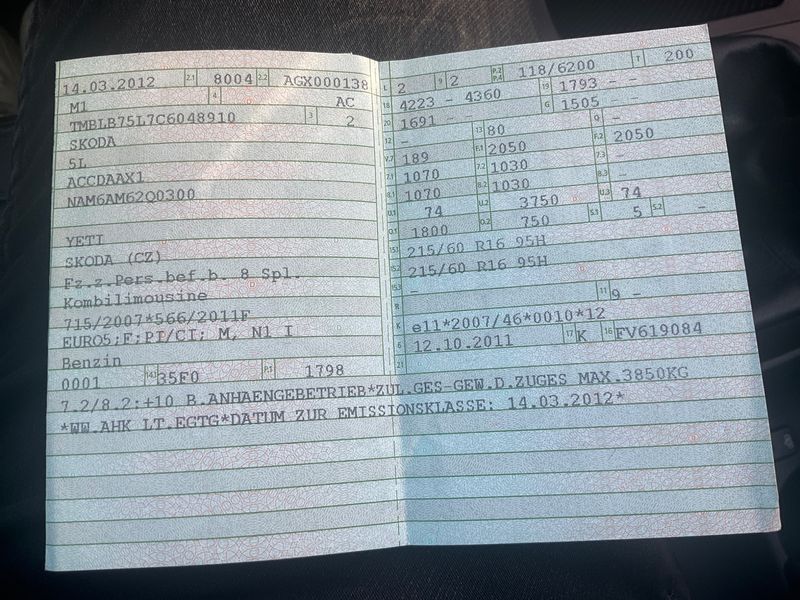 14.03.2012 2.1 8004 2.2 AGX000138
M1 4 AC
TMBLB75L7C6048910 3 2
SKODA
5L
ACCDAAX1
NAM6AM62Q0300
YETI
SKODA (CZ)
Fz.z.Pers.bef.b. 8 Spl.
Kombilimousine
715/2007*566/2011F
EURO5;F;PI/CI; M, N1 I
Benzin
0001 14.1 35F0 P.1 1798
L 2 9 2 P.2 P.4 118/6200 T 200
18 4223 - 4360 19 1793 - -
20 1691 - - G 1505 - -
12 - 13 80 Q -
V.7 189 F.1 2050 F.2 2050
7.1 1070 7.2 1030 7.3 -
8.1 1070 8.2 1030 8.3 -
U.1 74 U.2 3750 U.3 74
O.1 1800 O.2 750 S.1 5 S.2 -
15.1 215/60 R16 95H
15.2 215/60 R16 95H
15.3 -
R 11 9 -
K e11*2007/46*0010*12
6 12.10.2011 17 K 16 FV619084
21
7.2/8.2:+10 B.ANHAENGEBETRIEB*ZUL.GES-GEW.D.ZUGES MAX.3850KG
*WW.AHK LT.EGTG*DATUM ZUR EMISSIONSKLASSE: 14.03.2012*